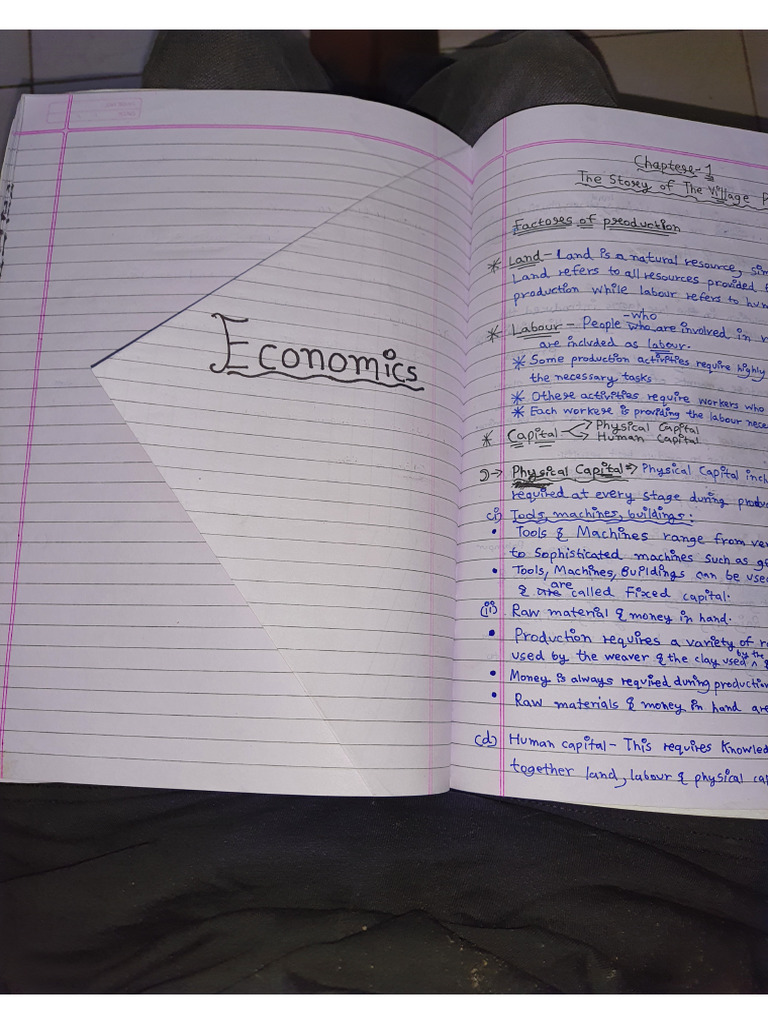 Economics
Chaptere-1
The Storey of The Village P
Factores of preoduction
* Land - Land is a natural resource, sim
Land refers to all resources provided
production while labour refers to hum
* Labour - People -who
who are involved in
are included as labour.
* Some production activities require highly
the necessary tasks
* Othere activities require workers who
* Each workere is providing the labour nece
* Capital Physical Capital
Human Capital
1)→ Physical Capital ⇒ Physical Capital incl
required at every stage during produc
(i) Tools, machines, buildings:
• Tools & Machines range from ver
to sophisticated machines such as ge
• Tools, Machines, Buildings can be use
& are called Fixed capital.
(ii) Raw material & money in hand.
• Production requires a variety of ra
used by the weaver & the clay used ^ by the
• Money is always required during production
• Raw materials & money in hand are
(d) Human capital - This requires Knowled
together land, labour & physical cap